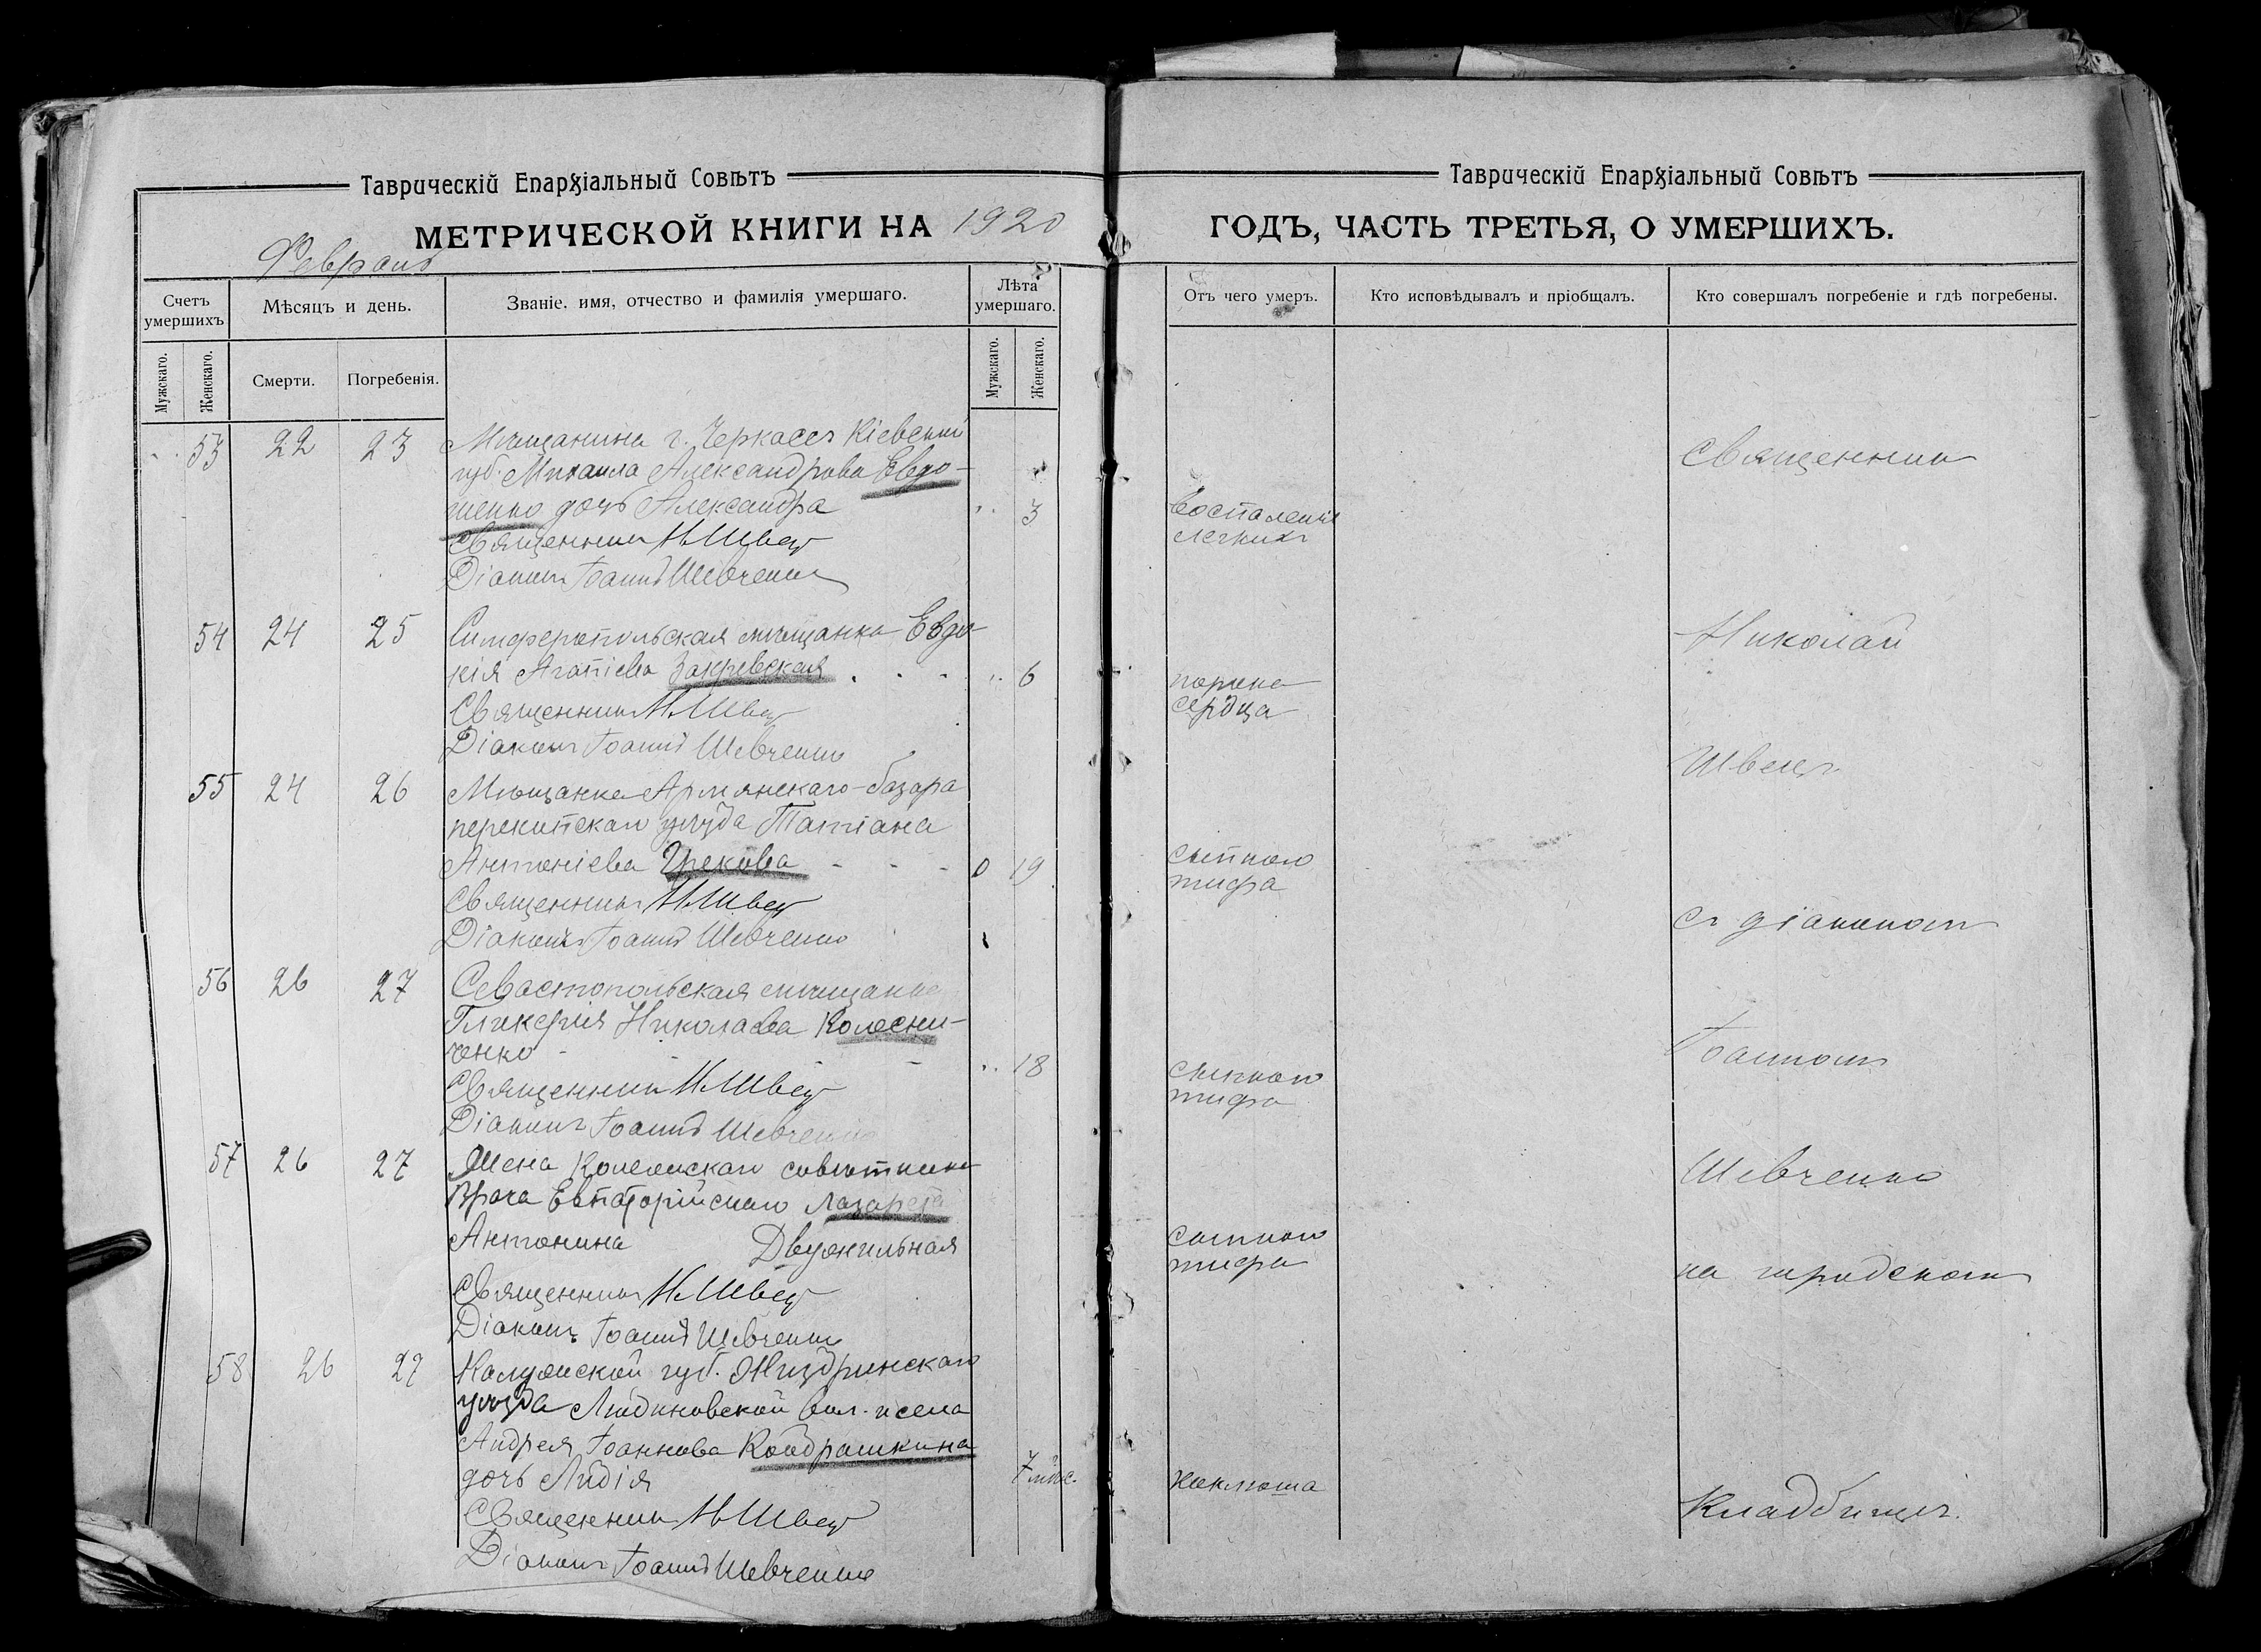 Таврическій Епархіальный Совѣтъ
МЕТРИЧЕСКОЙ КНИГИ НА 1920
Февраль
Счетъ умершихъ
Мѣсяцъ и день.
Званіе, имя, отчество и фамилія умершаго.
Лѣта умершаго.
Мужскаго.
Женскаго.
Смерти.
Погребенія.
Мужскаго.
Женскаго.
53 22 23 Мѣщанина г. Черкассъ Кіевской
губ. Михаила Александрова Евдо-
шенко дочь Александра 3
Священникъ Н Швец
Діаконъ Іоаннъ Шевченко
54 24 25 Симферопольская мѣщанка Евдо-
кія Агапіева Закревская 6
Священникъ Н. Швец
Діаконъ Іоаннъ Шевченко
55 24 26 Мѣщанка Армянскаго-базара
перекопскаго уѣзда Татіана
Антоніева Грекова 0 19
Священникъ Н Швец
Діаконъ Іоаннъ Шевченко
56 26 27 Севастопольская мѣщанка
Гликерія Николаева Колесни-
ченко 18
Священникъ Н Швец
Діаконъ Іоаннъ Шевченко
57 26 27 Жена Колежскаго совѣтника
врача Евпаторійскаго Лазарета
Антонина Двужильная
Священникъ Н Швец
Діаконъ Іоаннъ Шевченко
58 26 27 Калужской губ. Жиздринскаго
уѣзда Людиновской вол. и села
Андрея Іоаннова Кондрашкина
дочь Лидія 7 мѣс.
Священникъ Н Швец
Діаконъ Іоаннъ Шевченко
Таврическій Епархіальный Совѣтъ
ГОДЪ, ЧАСТЬ ТРЕТЬЯ, О УМЕРШИХЪ.
Отъ чего умеръ.
Кто исповѣдывалъ и пріобщалъ.
Кто совершалъ погребеніе и гдѣ погребены.
Священникъ
воспаленія
легкихъ
Николай
порока
сердца
Швецъ
сыпного
тифа
съ діакономъ
Іоанномъ
сыпного
тифа
Шевченко
сыпного
тифа
на городскомъ
коклюша
кладбищѣ.